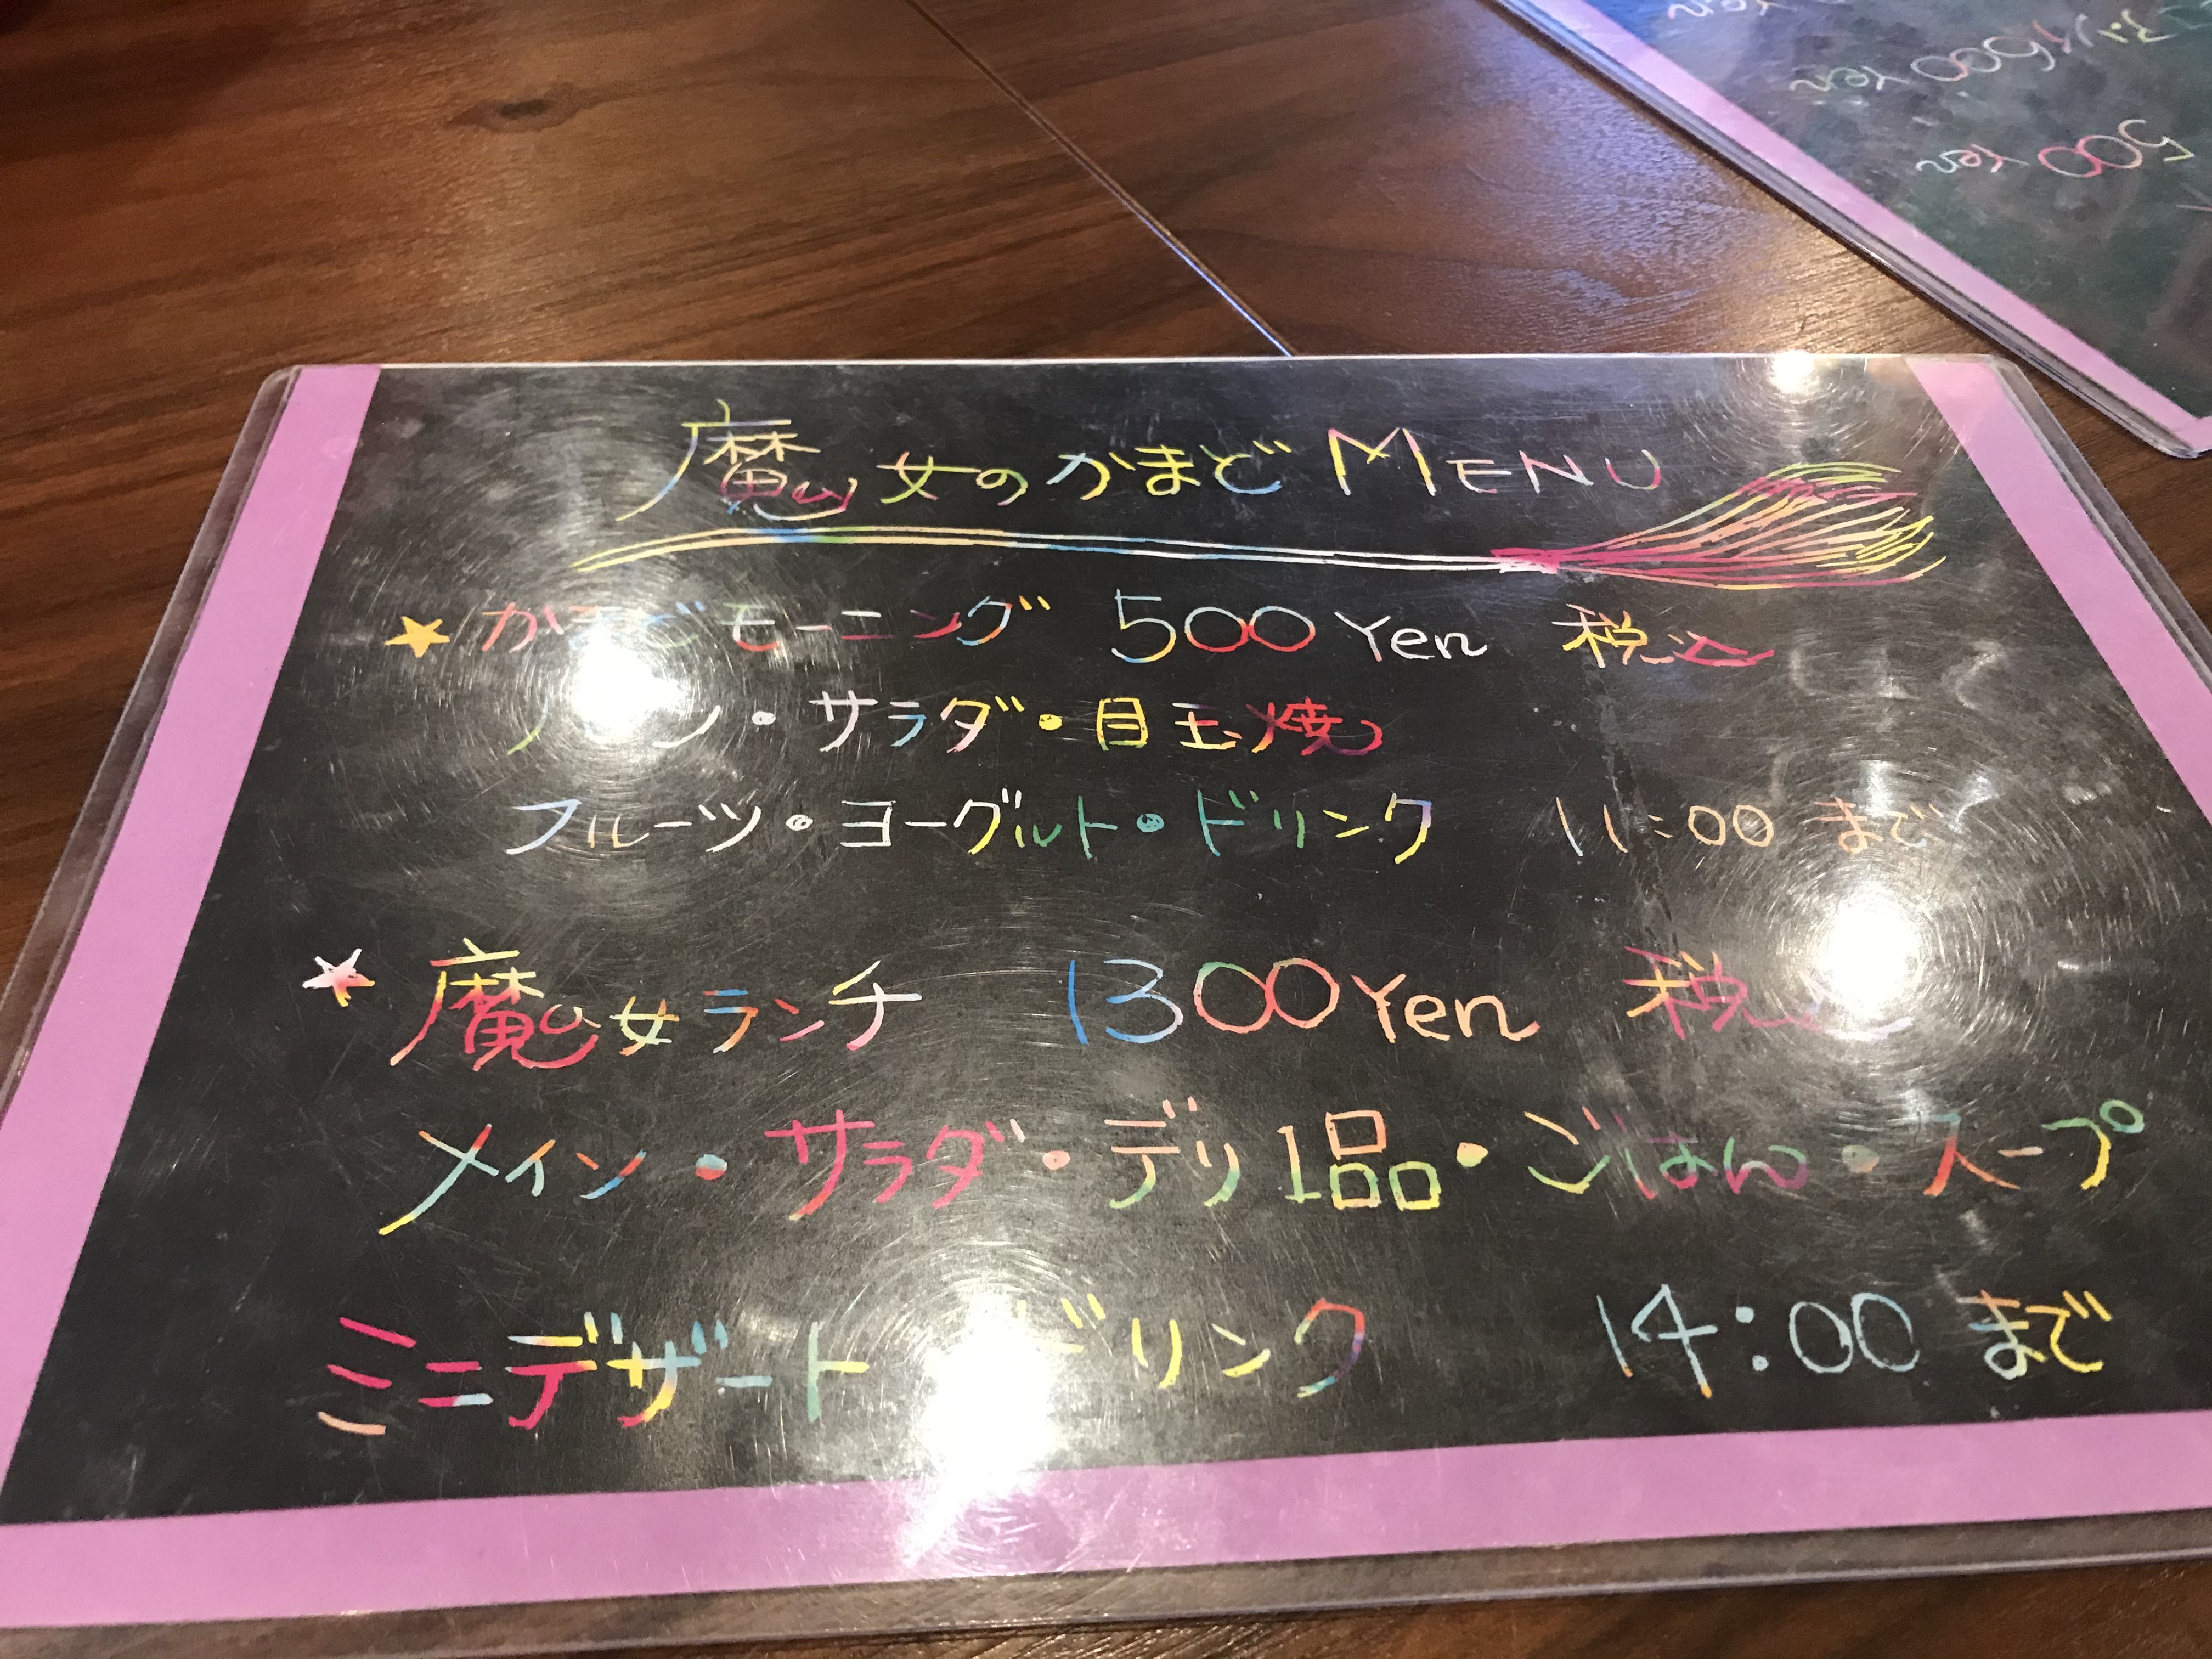 魔女のかまど MENU
かまどモーニング 500 Yen 税込
パン・サラダ・目玉焼
フルーツ・ヨーグルト・ドリンク 11:00 まで
魔女ランチ 1300 Yen 税込
メイン・サラダ・デリ1品・ごはん・スープ
ミニデザート ドリンク 14:00 まで
Yen
500 Yen
500 Yen